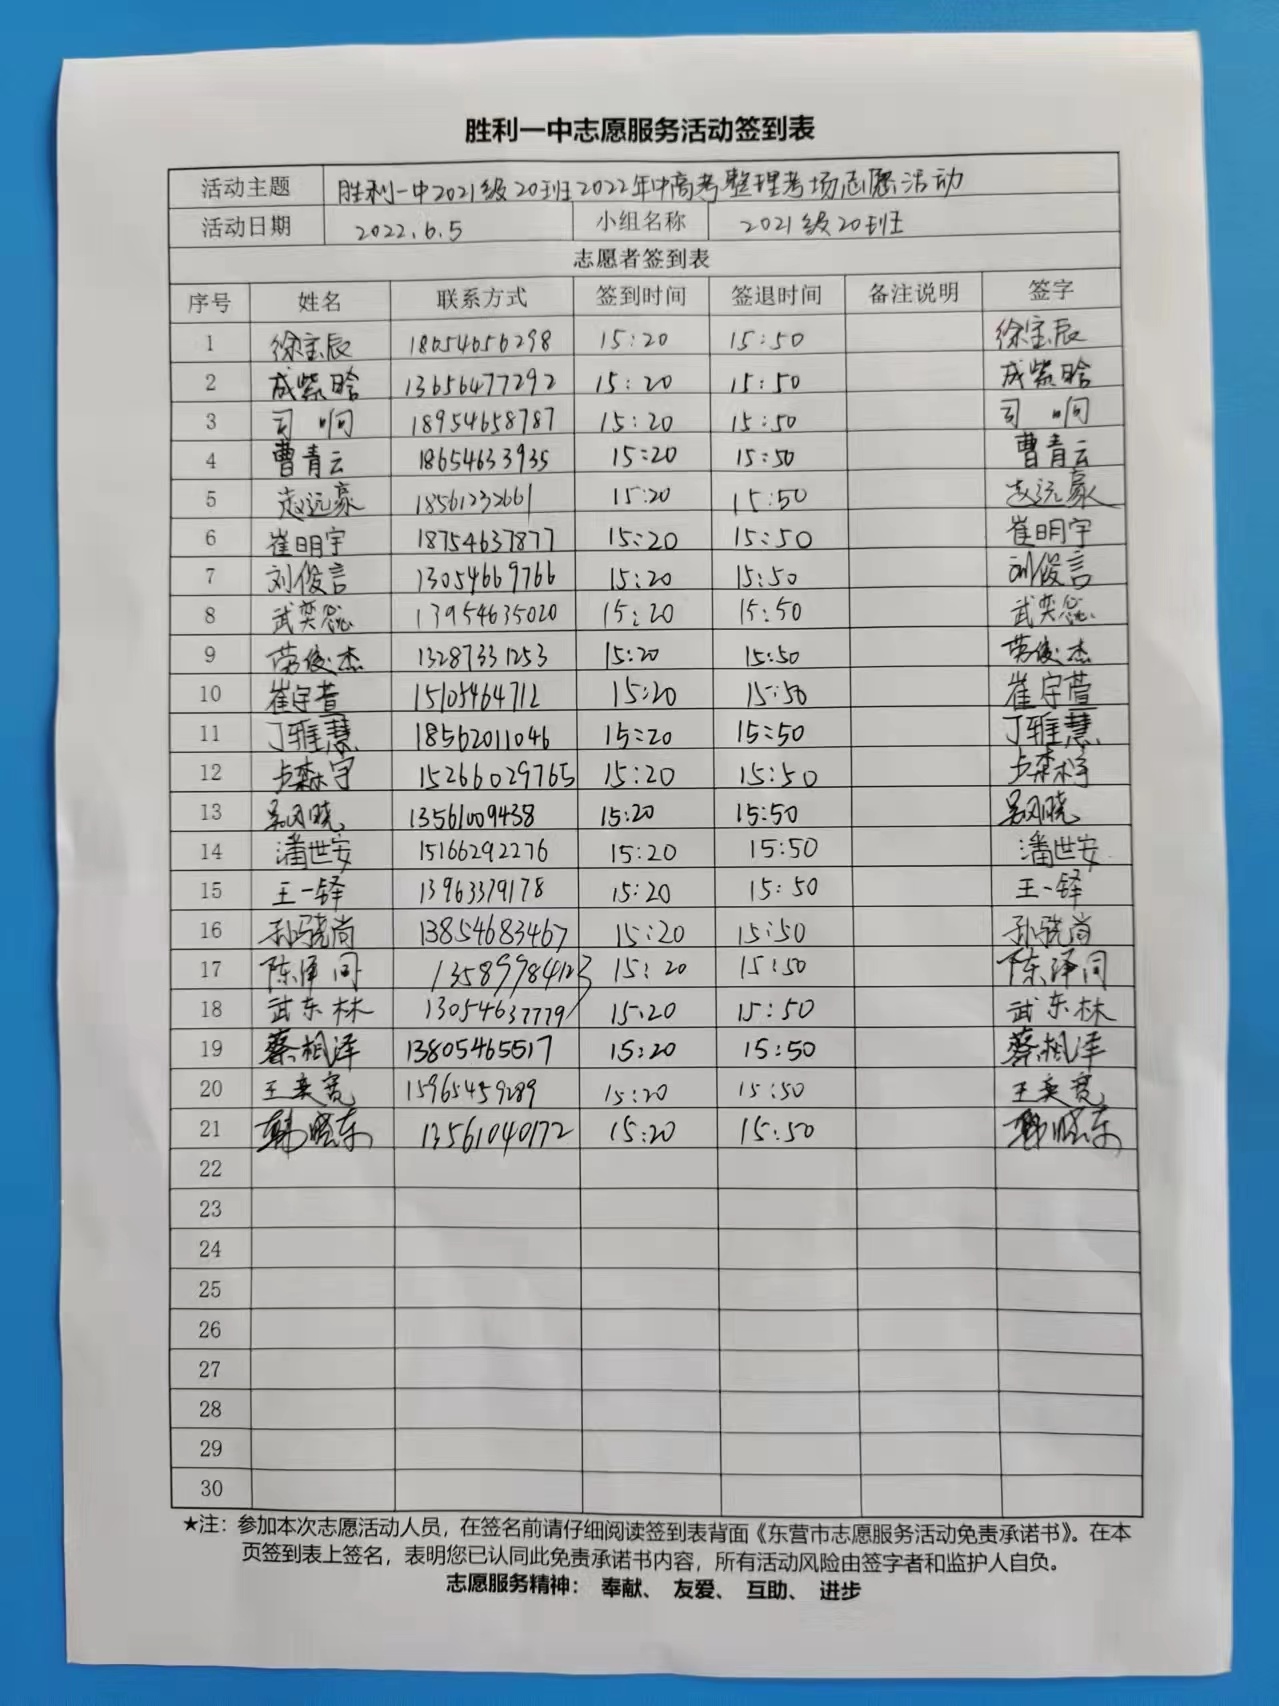 胜利一中志愿服务活动签到表
活动主题 胜利一中2021级20班2022年中高考整理考场志愿活动
活动日期 2022.6.5 小组名称 2021级20班
志愿者签到表
序号 姓名 联系方式 签到时间 签退时间 备注说明 签字
1 徐宝辰 18654656298 15:20 15:50 徐宝辰
2 成紫晗 13656477292 15:20 15:50 成紫晗
3 司响 18954658787 15:20 15:50 司响
4 曹青云 18654633935 15:20 15:50 曹青云
5 赵远豪 18561232661 15:20 15:50 赵远豪
6 崔明宇 18754637877 15:20 15:50 崔明宇
7 刘俊言 13054669766 15:20 15:50 刘俊言
8 武奕 13954635020 15:20 15:50 武奕
9 俊杰 13287331253 15:20 15:50 俊杰
10 崔宇萱 15105464712 15:20 15:50 崔宇萱
11 丁雅慧 18562011046 15:20 15:50 丁雅慧
12 森宇 15266029765 15:20 15:50 森
13 吴风晓 13561009438 15:20 15:50 吴风晓
14 潘世安 15166292276 15:20 15:50 潘世安
15 王一铎 13963379178 15:20 15:50 王一铎
16 孙骁尚 13854683467 15:20 15:50 孙骁尚
17 陈泽同 13589984123 15:20 15:50 陈泽同
18 武东林 13054637779 15:20 15:50 武东林
19 蔡相泽 13805465517 15:20 15:50 蔡相泽
20 王奕宽 15965459289 15:20 15:50 王奕宽
21 韩晓东 13561040172 15:20 15:50 韩晓东
22
23
24
25
26
27
28
29
30
★注：参加本次志愿活动人员，在签名前请仔细阅读签到表背面《东营市志愿服务活动免责承诺书》。在本
页签到表上签名，表明您已认同此免责承诺书内容，所有活动风险由签字者和监护人自负。
志愿服务精神： 奉献、 友爱、 互助、 进步